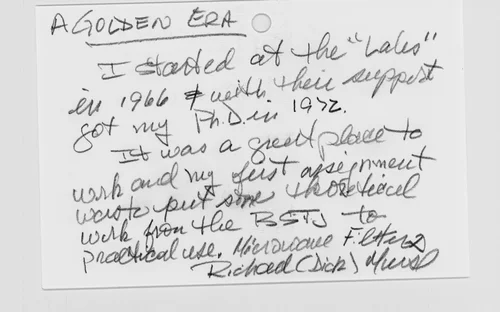 A GOLDEN ERA
I started at the "Labs"
in 1966 & with their support
got my Ph.D. in 1972.
It was a great place to
work and my first assignment
was to put some theoretical
work from the BSTJ to
practical use. Microwave Filters
Richard (Dick)